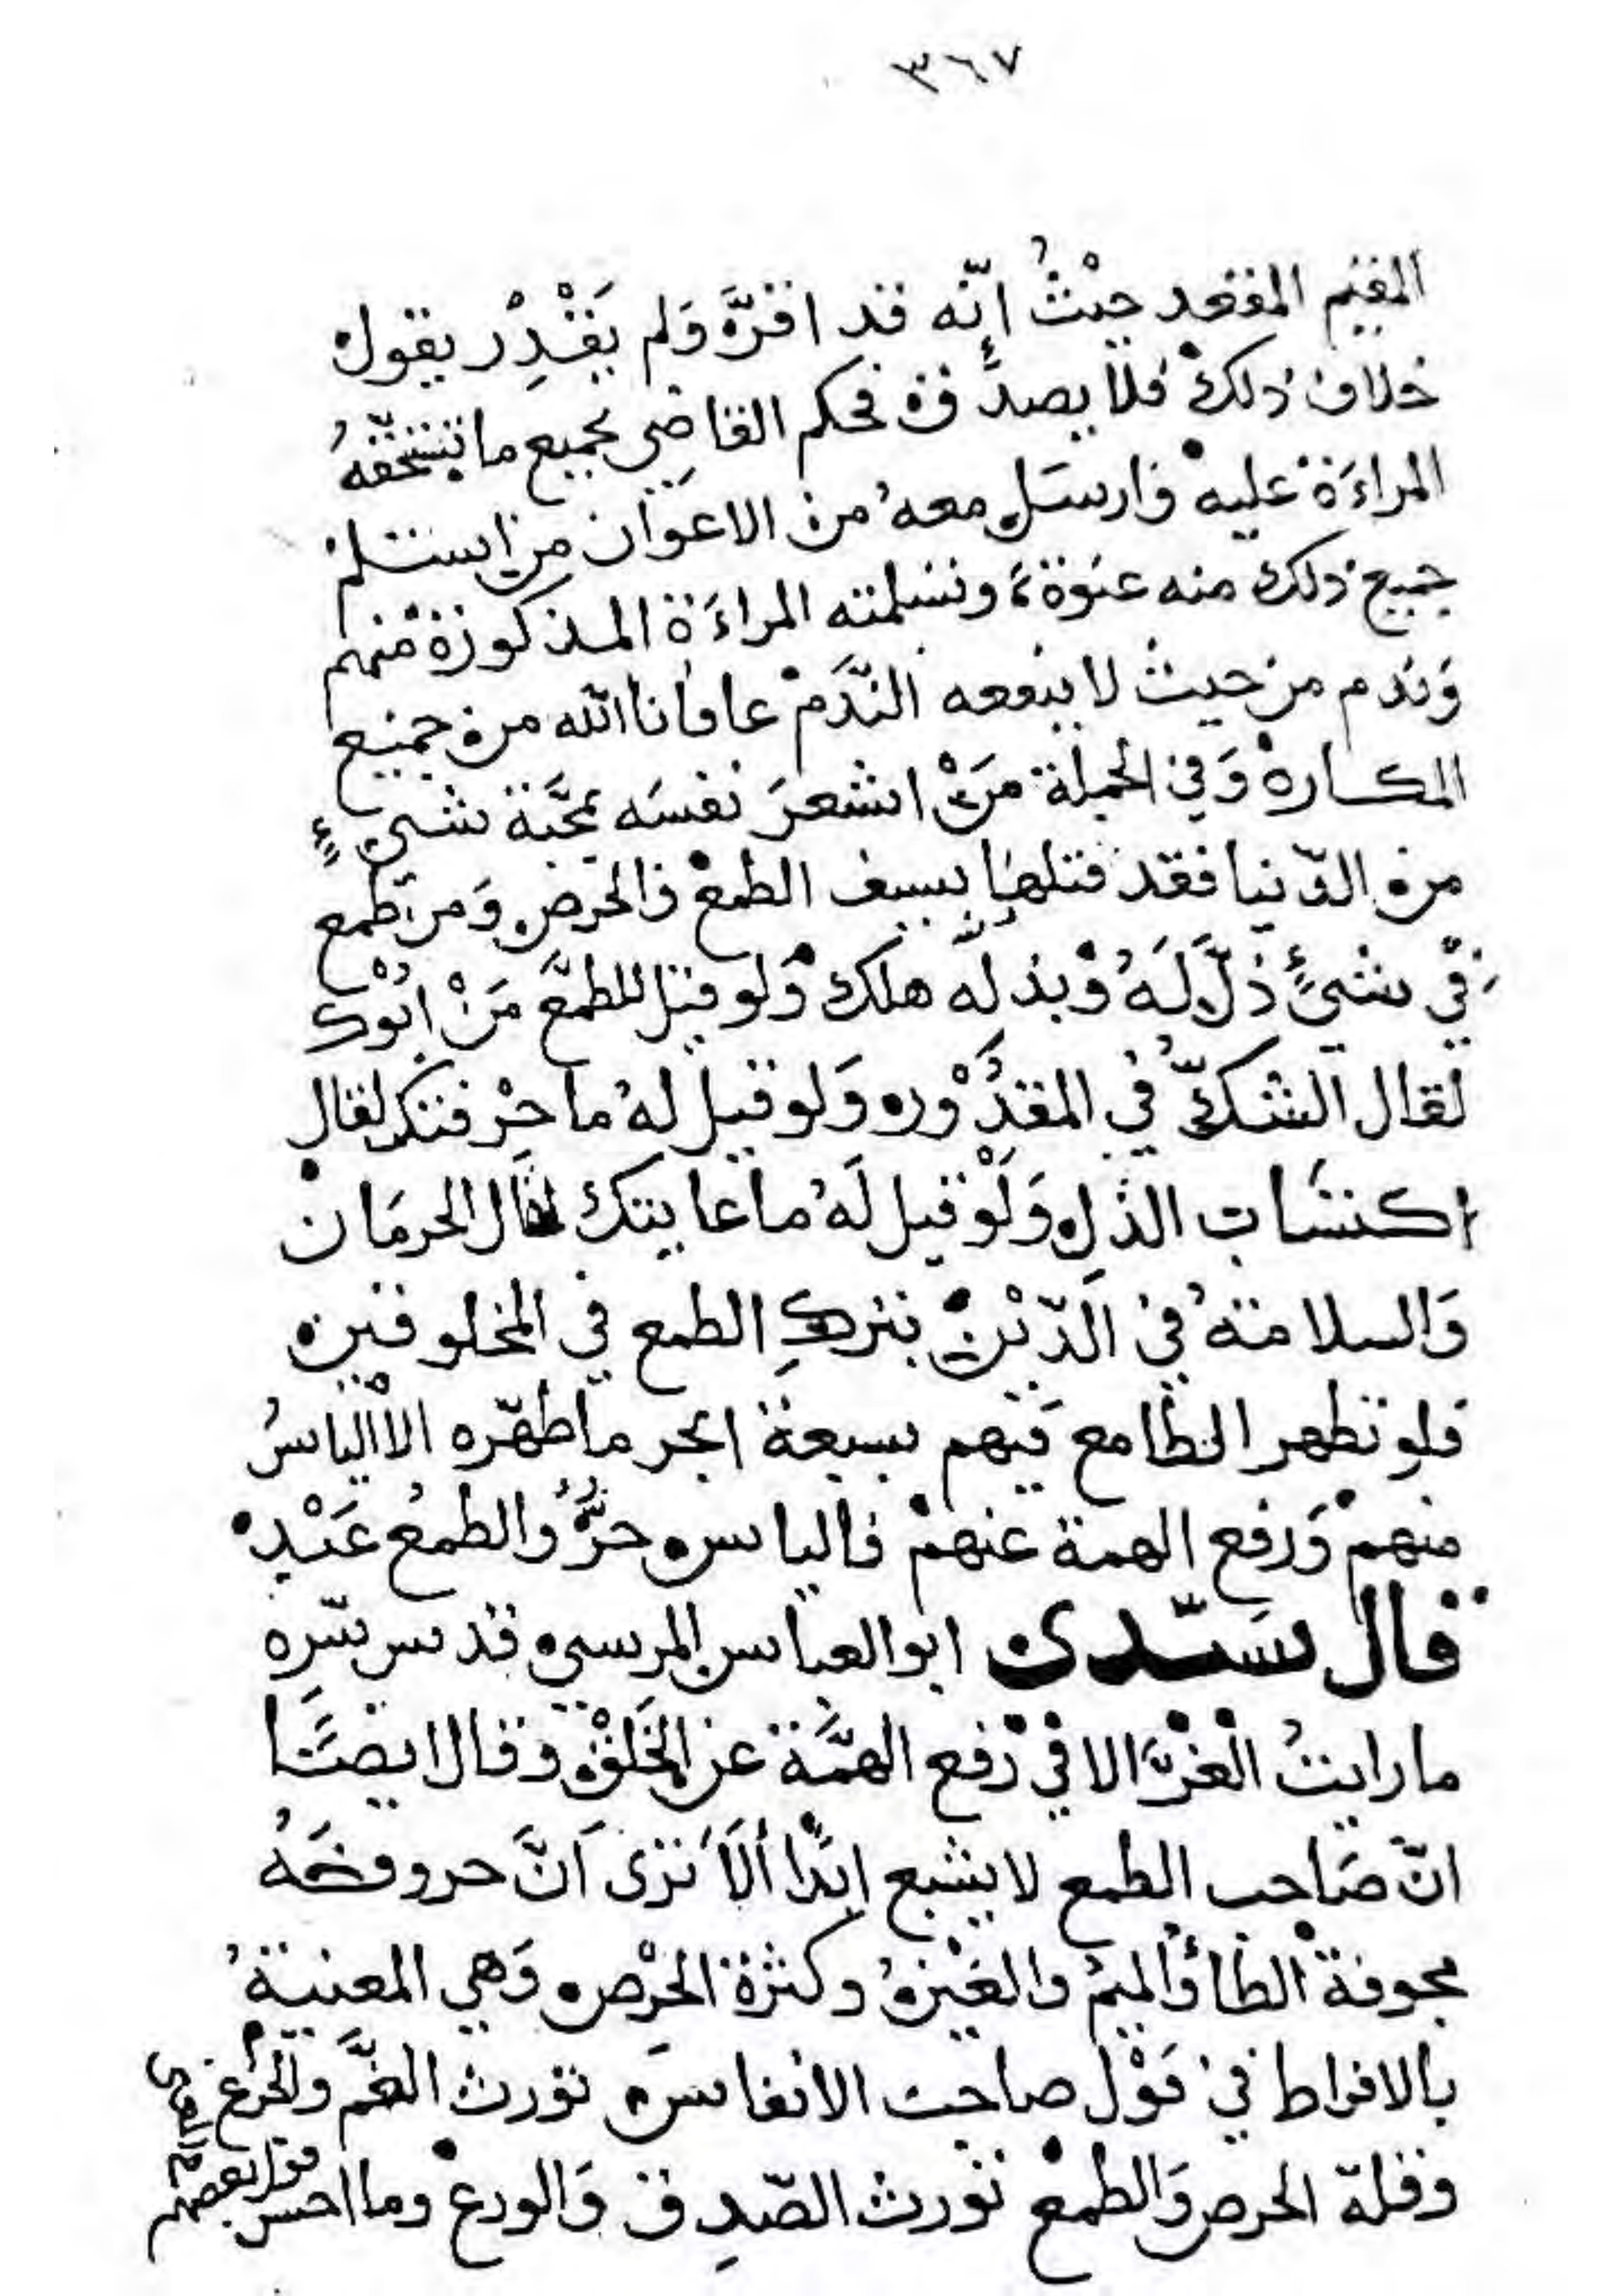 ٣٦٧
المقيم المقعد حيْثُ إنّه قد اقرَّ وَلم يَقْدِر يقول
خلاف ذلك فلا يصدق فحكم القاضي بجميع ما تستحقّهُ
المراءَة عليه وارسَل معهُ من الاعوَان من استلم
جميع ذلك منه عنوة وتسلمته المراءَة المذكورة منهم
وَندم من حيث لا ينفعه النّدَم عافانا الله من جميع
المكاره وَفي الجملة مَنْ اشعرَ نفسَه بمحَبَّة شيءٍ
من الدّنيا فقد قتلها بسيف الطمع والحرص وَمن طمع
في شيءٍ ذلَّ لَهُ وْبذلّه هلك وَلو قيل للطمَّع مَنْ ابُوْك
لقال الشكّ في المقدُوْر وَلو قيل لهُ ما حرْفتك لقال
اكتسَاب الذل وَلَوْ قيل لَهُ ما غايتك لقال الحرمَان
وَالسلامة في الدّيْن بتركِ الطمع في المخلوقين
فلو تطهر الطامع فيهم بسبعة ابحر ما طهّره الا الياسُ
منهمْ وَرفع الهمة عنهمْ فالياس حرٌّ والطمعُ عَبْد
قال سَيّدى ابو العباس المرسي قدس سّره
ما رايتُ العزَّ الا في رفع الهمَّة عن الخَلْق وقال ايضًا
انّ صَاحب الطمع لا يشبع ابدًا ألَا تَرى اَنَّ حروفهُ
مجوفة الطا وَالميم والعَيْن وكثرة الحرْص وَهي المعنيةُ
بالافراط في قوْل صاحب الانفاس تورث الغمَّ والجزع
وقلة الحرص وَالطمع تورث الصّدِق وَالورع وما احسن
قول بعضهم